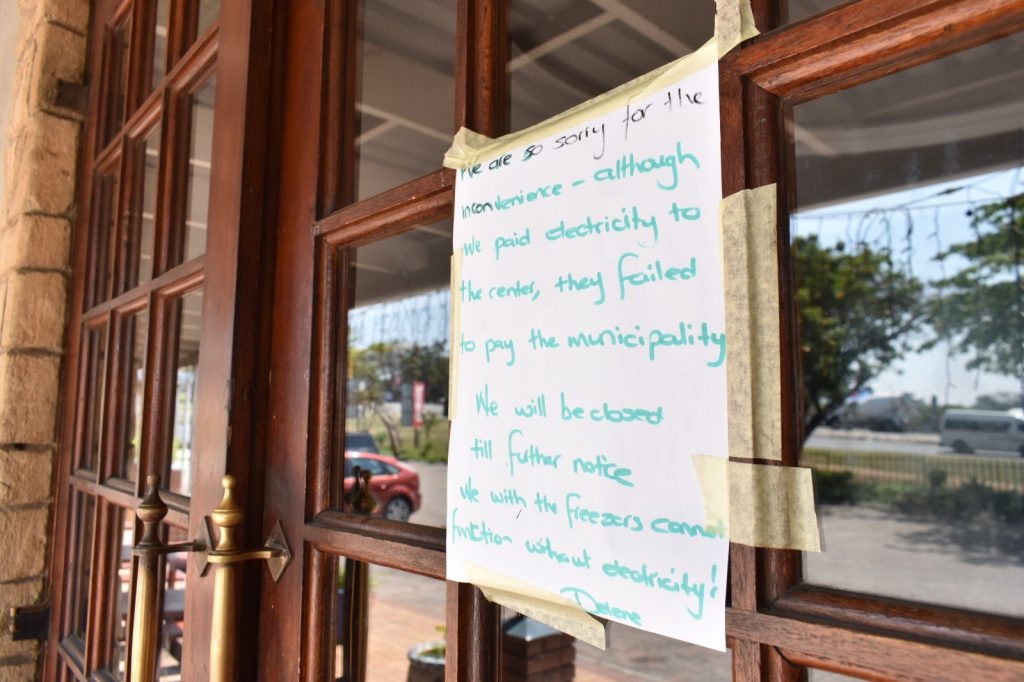 We are so sorry for the
inconvenience - although
We paid electricity to
the center, they failed
to pay the municipality
We will be closed
till further notice
We with the freezers cannot
function without electricity!
Delene